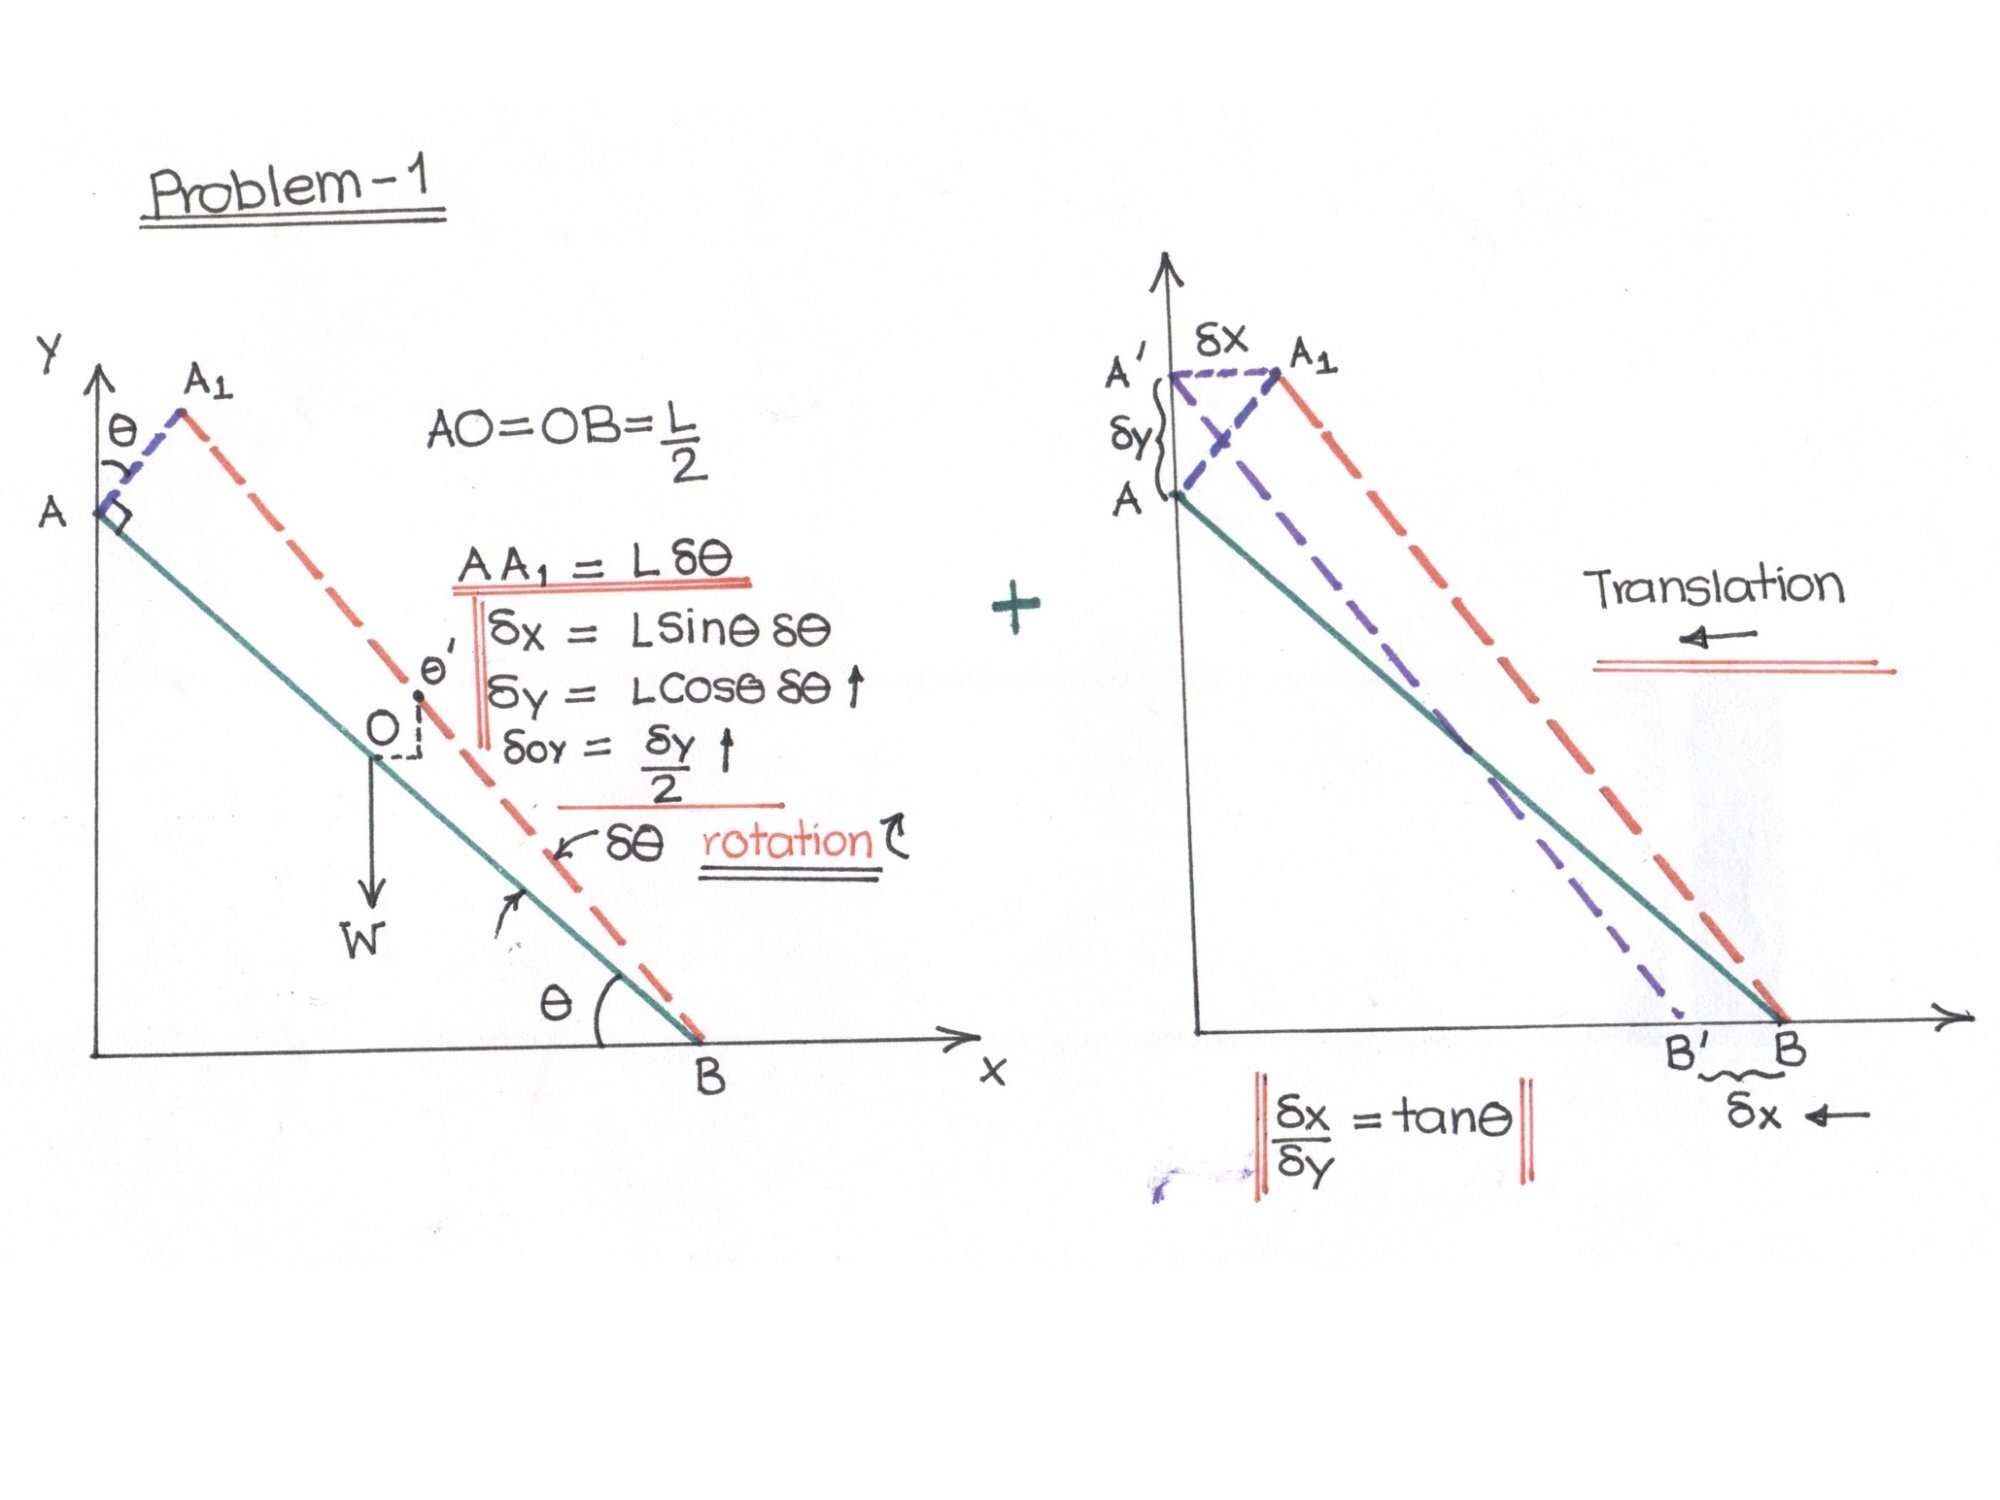 Problem-1
Y
A1
θ
A
AO=OB=L/2
AA1 = Lδθ
δx = LSinθ δθ
δy = LCosθ δθ ↑
δoy = δy/2 ↑
θ'
O
W
δθ rotation
θ
B
X
+
A'
δx
A1
δy
A
Translation
←
B'
B
δx ←
δx/δy = tanθ